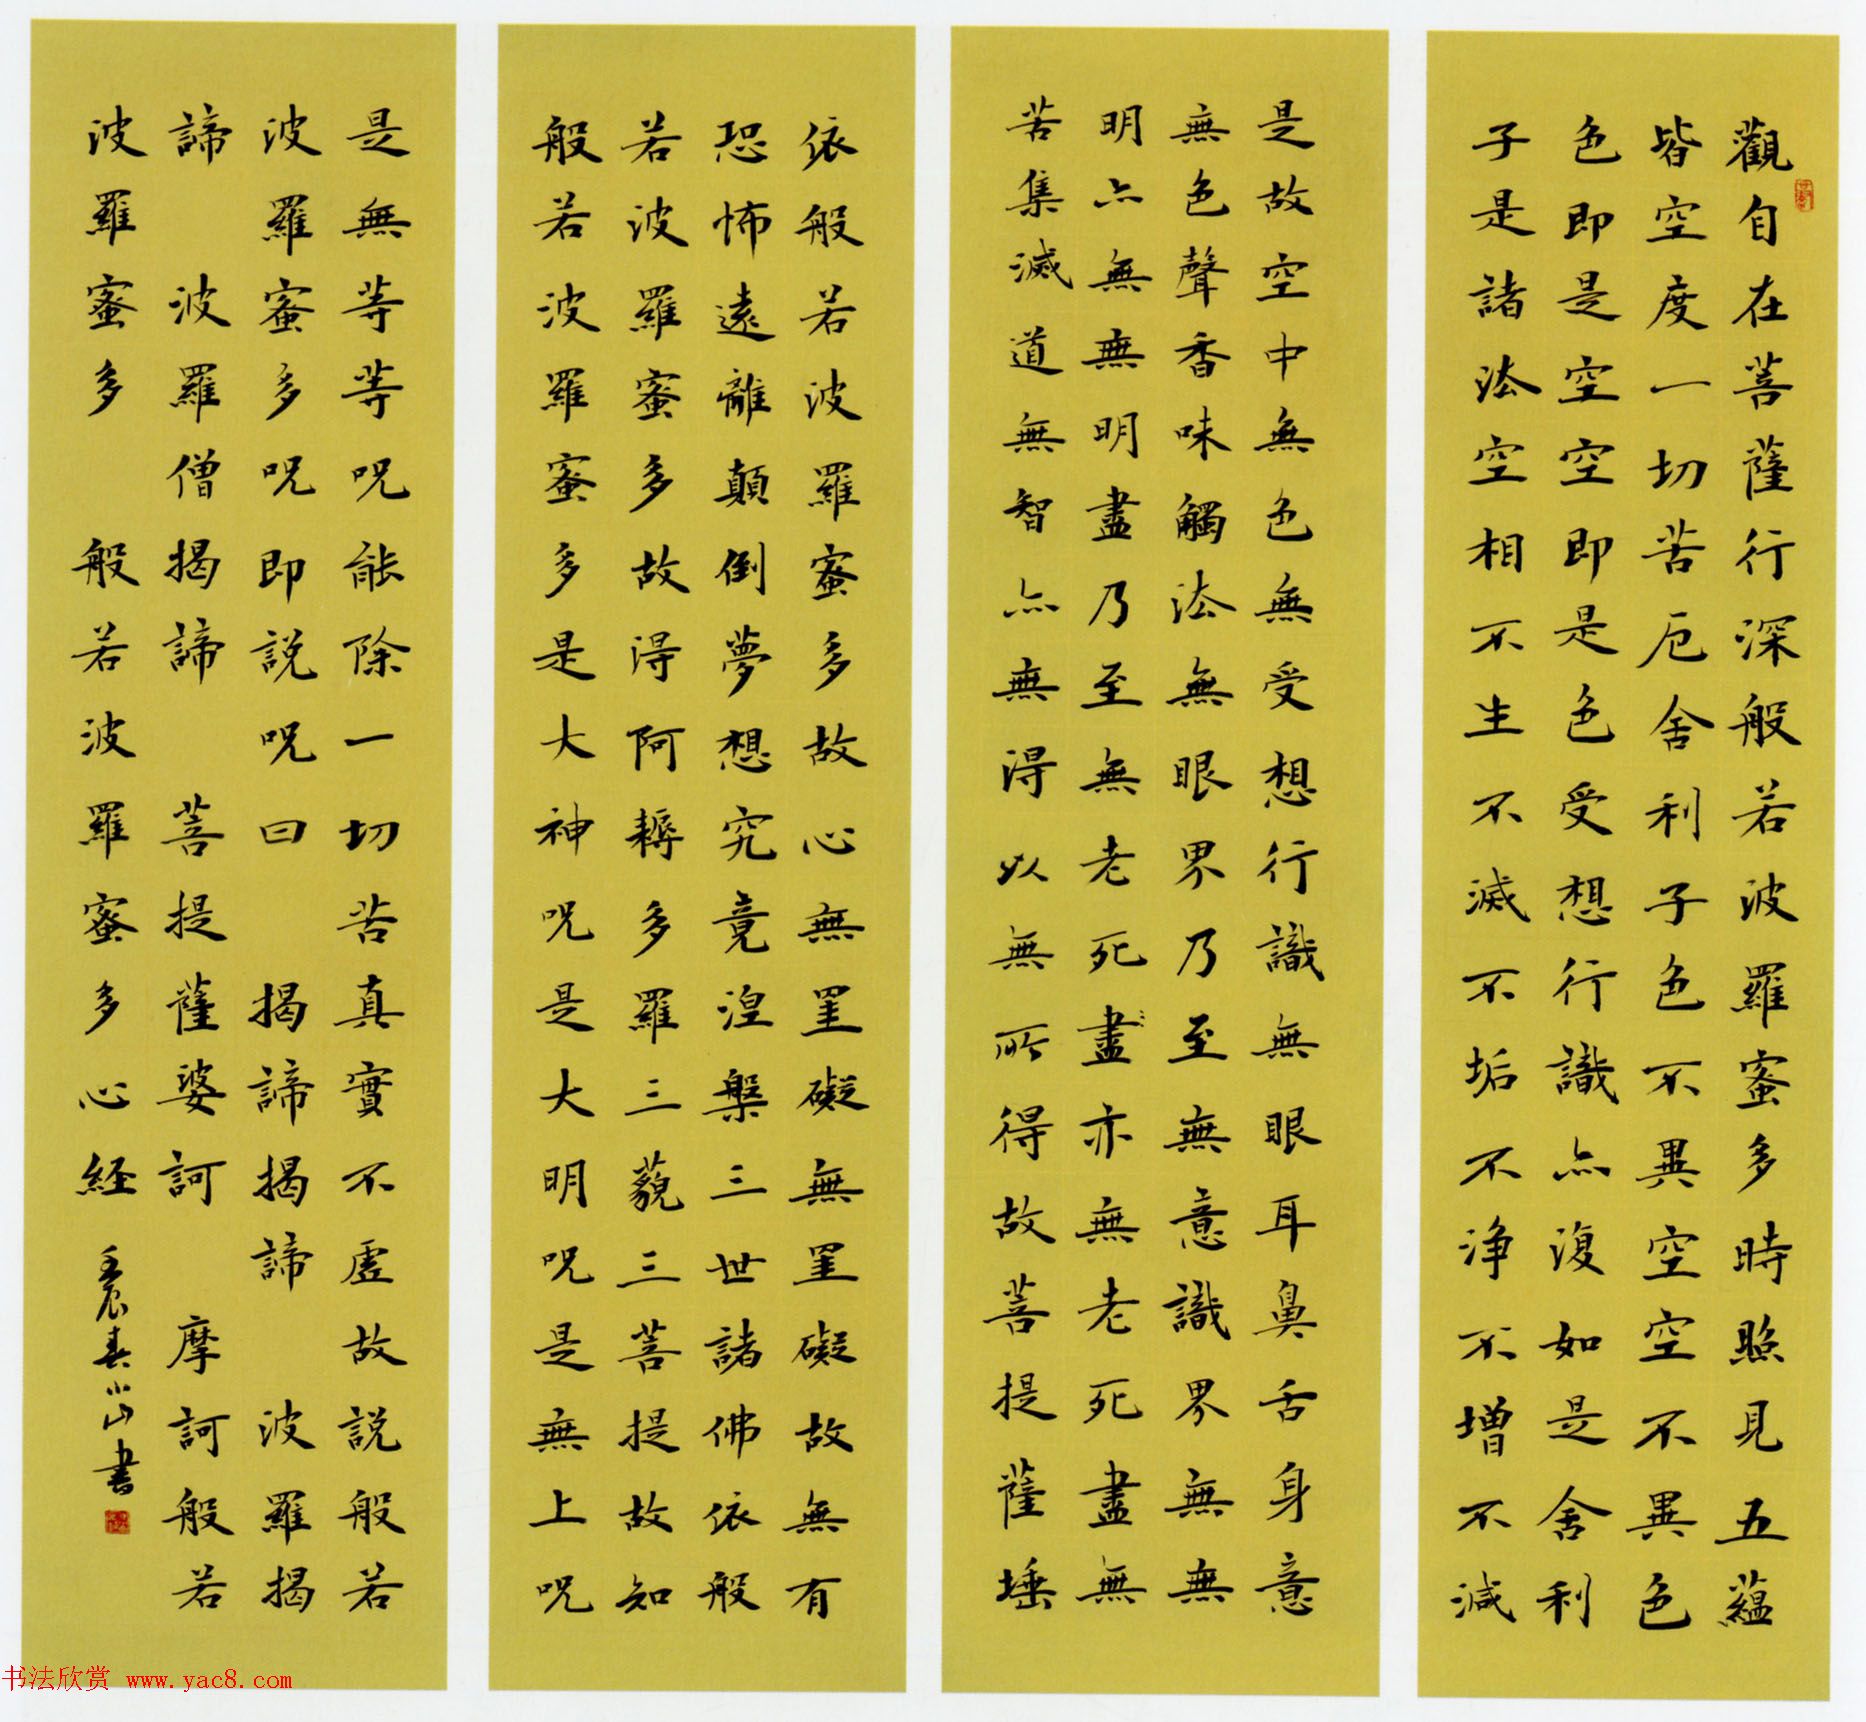 觀自在菩薩行深般若波羅蜜多時照見五蘊
皆空度一切苦厄舍利子色不異空空不異色
色即是空空即是色受想行識亦復如是舍利
子是諸法空相不生不滅不垢不淨不增不減
是故空中無色無受想行識無眼耳鼻舌身意
無色聲香味觸法無眼界乃至無意識界無無
明亦無無明盡乃至無老死盡亦無老死盡無
苦集滅道無智亦無得以無所得故菩提薩埵
依般若波羅蜜多故心無罣礙無罣礙故無有
恐怖遠離顛倒夢想究竟涅槃三世諸佛依般
若波羅蜜多故得阿耨多羅三藐三菩提故知
般若波羅蜜多是大神呪是大明呪是無上呪
是無等等呪能除一切苦真實不虛故説般若
波羅蜜多呪即説呪曰 揭諦揭諦 波羅揭
諦 波羅僧揭諦 菩提薩婆訶 摩訶般若
波羅蜜多 般若波羅蜜多心経 壬辰春小山書
书法欣赏 www.yac8.com